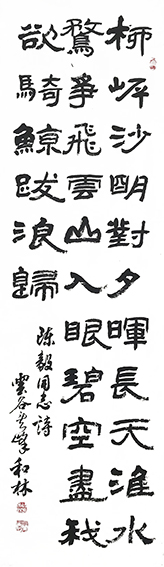 柳岸沙明對夕暉長天淮水
鶩爭飛雲山入眼碧空盡我
欲騎鯨跋浪歸
陈毅同志詩
雲谷峰和林